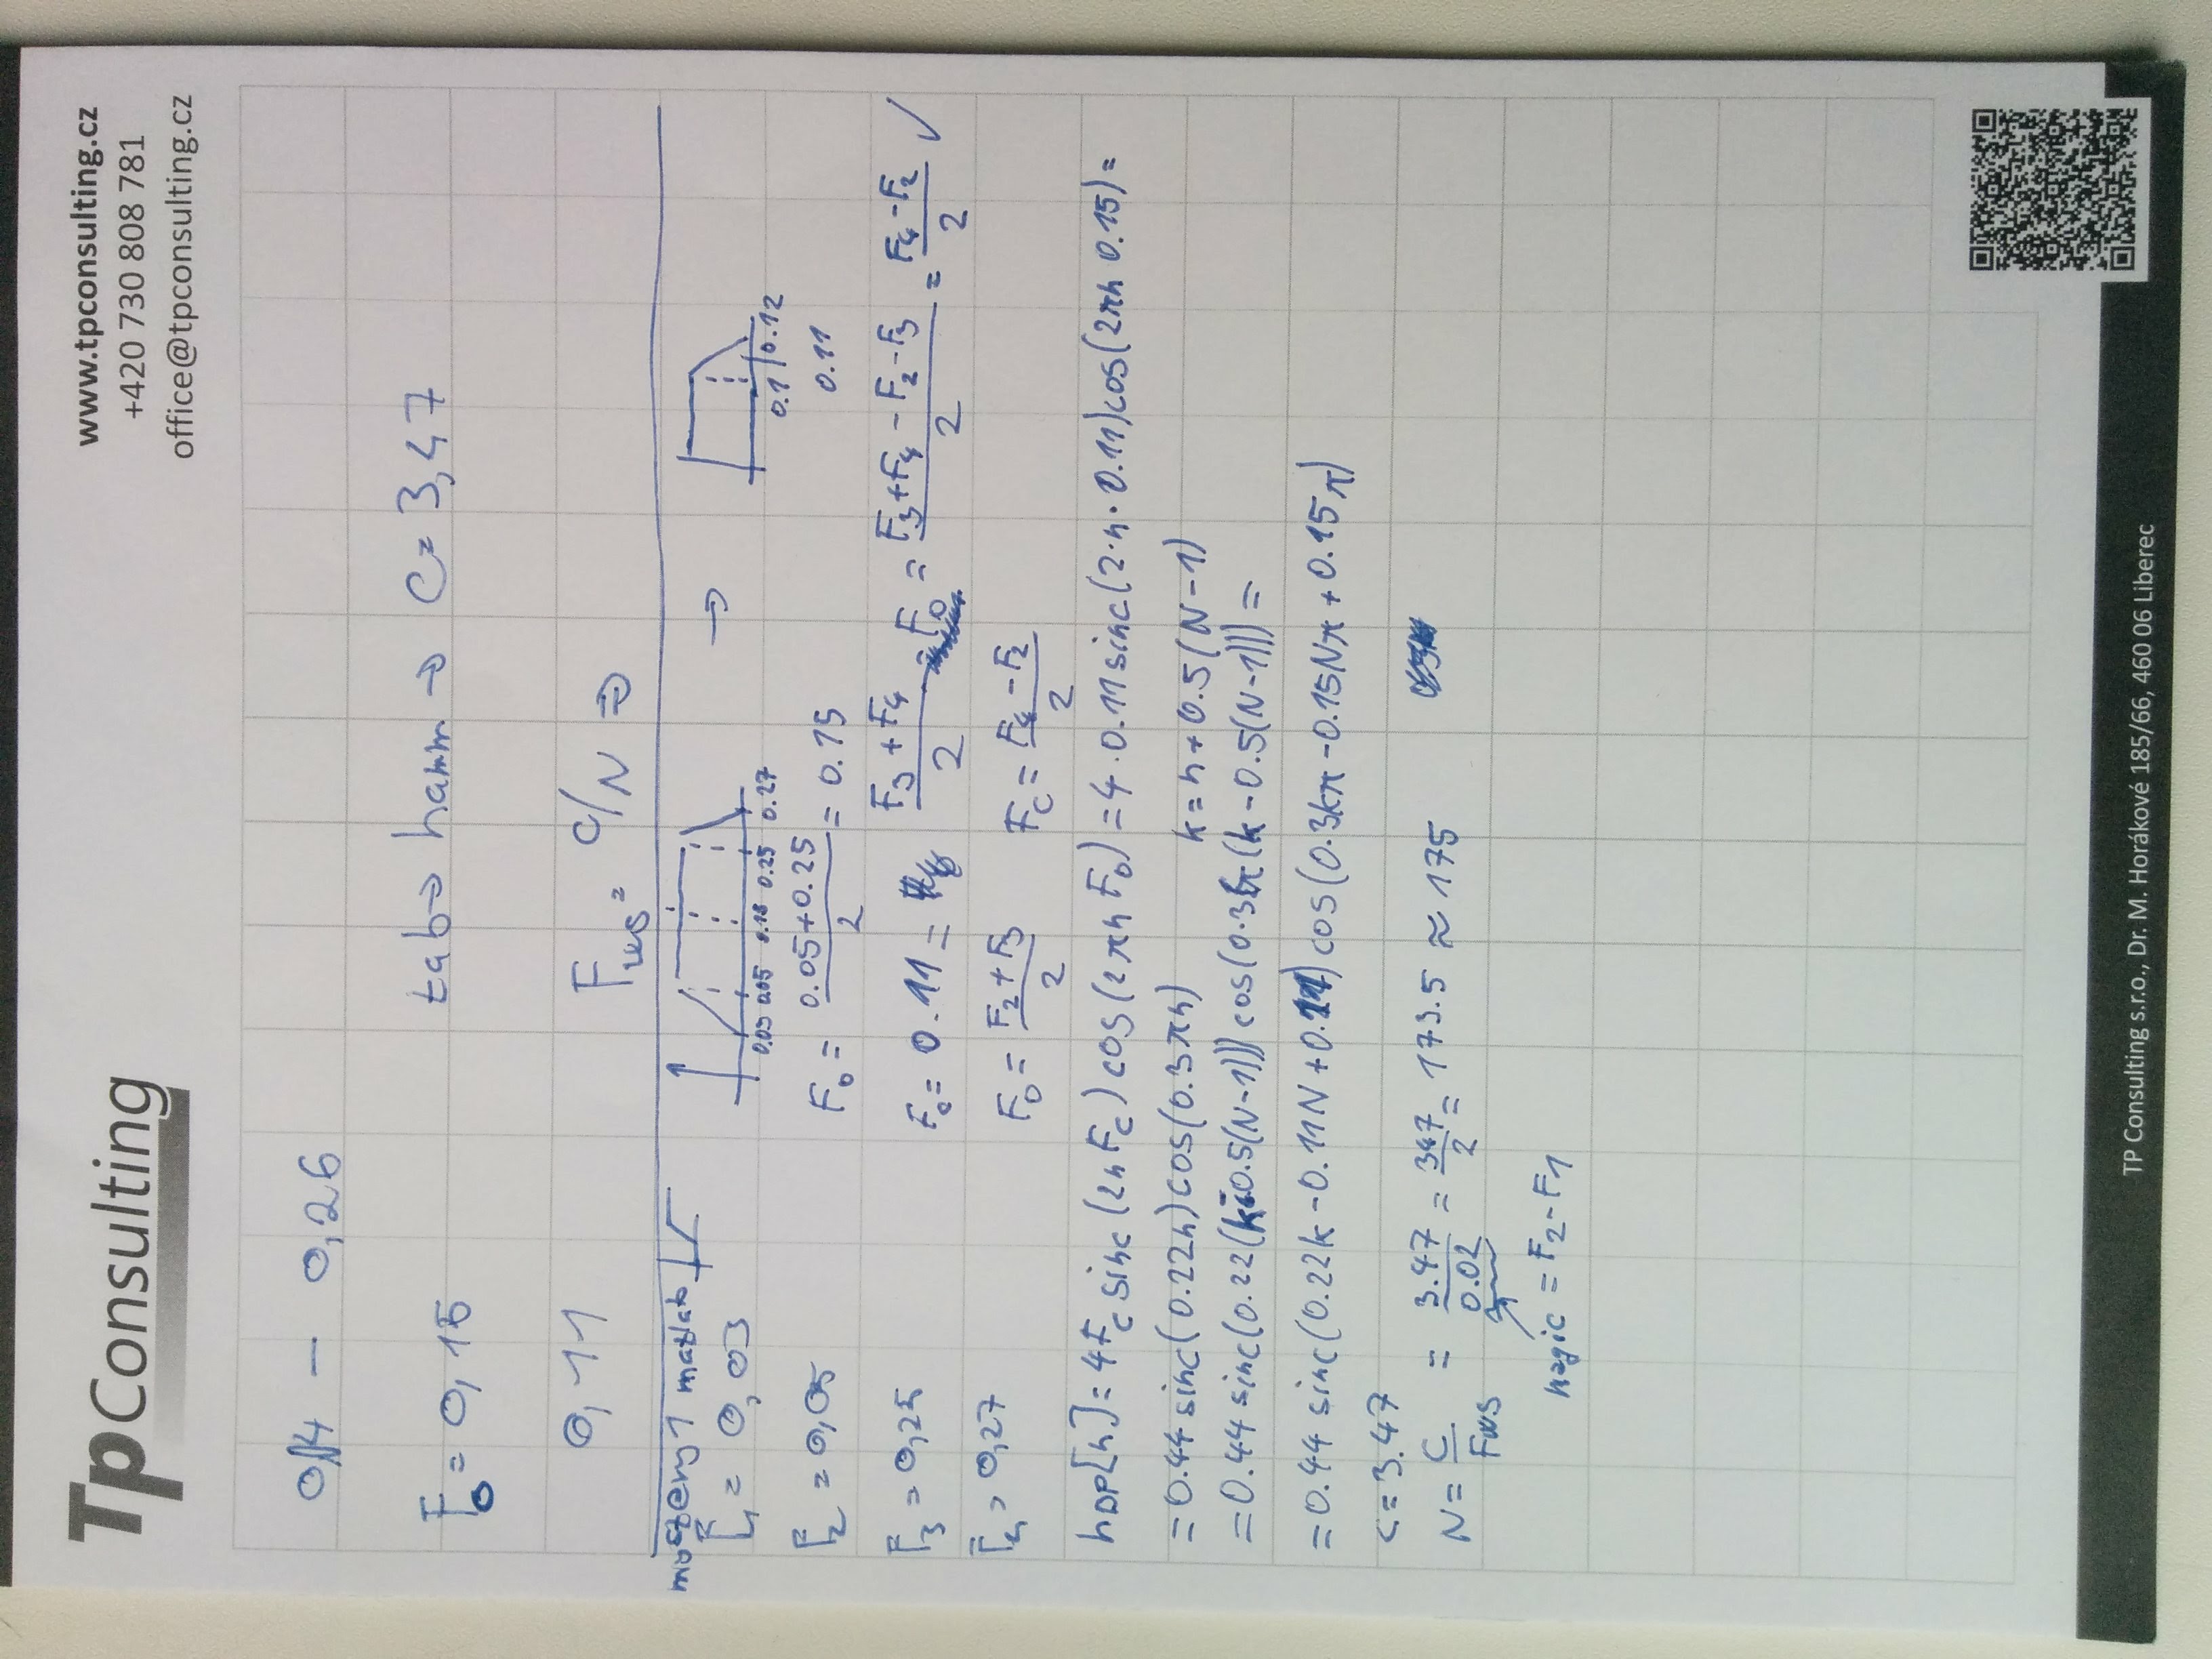 TpConsulting
www.tpconsulting.cz
+420 730 808 781
office@tpconsulting.cz
0,4 — 0,26
F₀ = 0,15
tab → hamm → C = 3,47
0,11
Fws = C/N ⇒
1 matlab
F₁ = 0,03
F₂ = 0,05
F₃ = 0,25
F₄ = 0,27
0.03 0.05 0.18 0.25 0.27
→
0.1 0.12
0.11
F₀ = (0.05+0.25)/2 = 0.15
Fc = 0.11 = (F₃+F₄)/2 - F₀ = (F₃+F₄-F₂-F₃)/2 = (F₄-F₂)/2 ✓
F₀ = (F₂+F₃)/2 Fc = (F₄-F₂)/2
hDP[n] = 4Fc sinc(2nFc)cos(2πnF₀) = 4·0.11sinc(2·n·0.11)cos(2πn 0.15) =
= 0.44 sinc(0.22n)cos(0.3πn) k = n+0.5(N-1)
= 0.44 sinc(0.22(k-0.5(N-1)))cos(0.3π(k-0.5(N-1))) =
= 0.44 sinc(0.22k-0.11N+0.11)cos(0.3kπ-0.15Nπ+0.15π)
C = 3.47
N = C/Fws = 3.47/0.02 = 347/2 = 173.5 ≈ 175
magic = F₂-F₁
TP Consulting s.r.o., Dr. M. Horákové 185/66, 460 06 Liberec